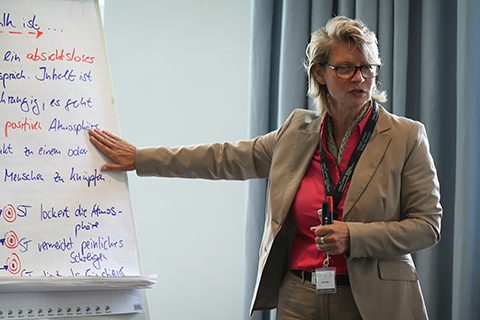 alk ist: ...
ein absichtsloses
spräch. Inhalt ist
hrangig, es geht
positiven Atmosphä
akt zu einem oder
Menschen zu knüpfen.
ST lockert die Atmos-
phäre
ST vermeidet peinliches
Schweigen
ST